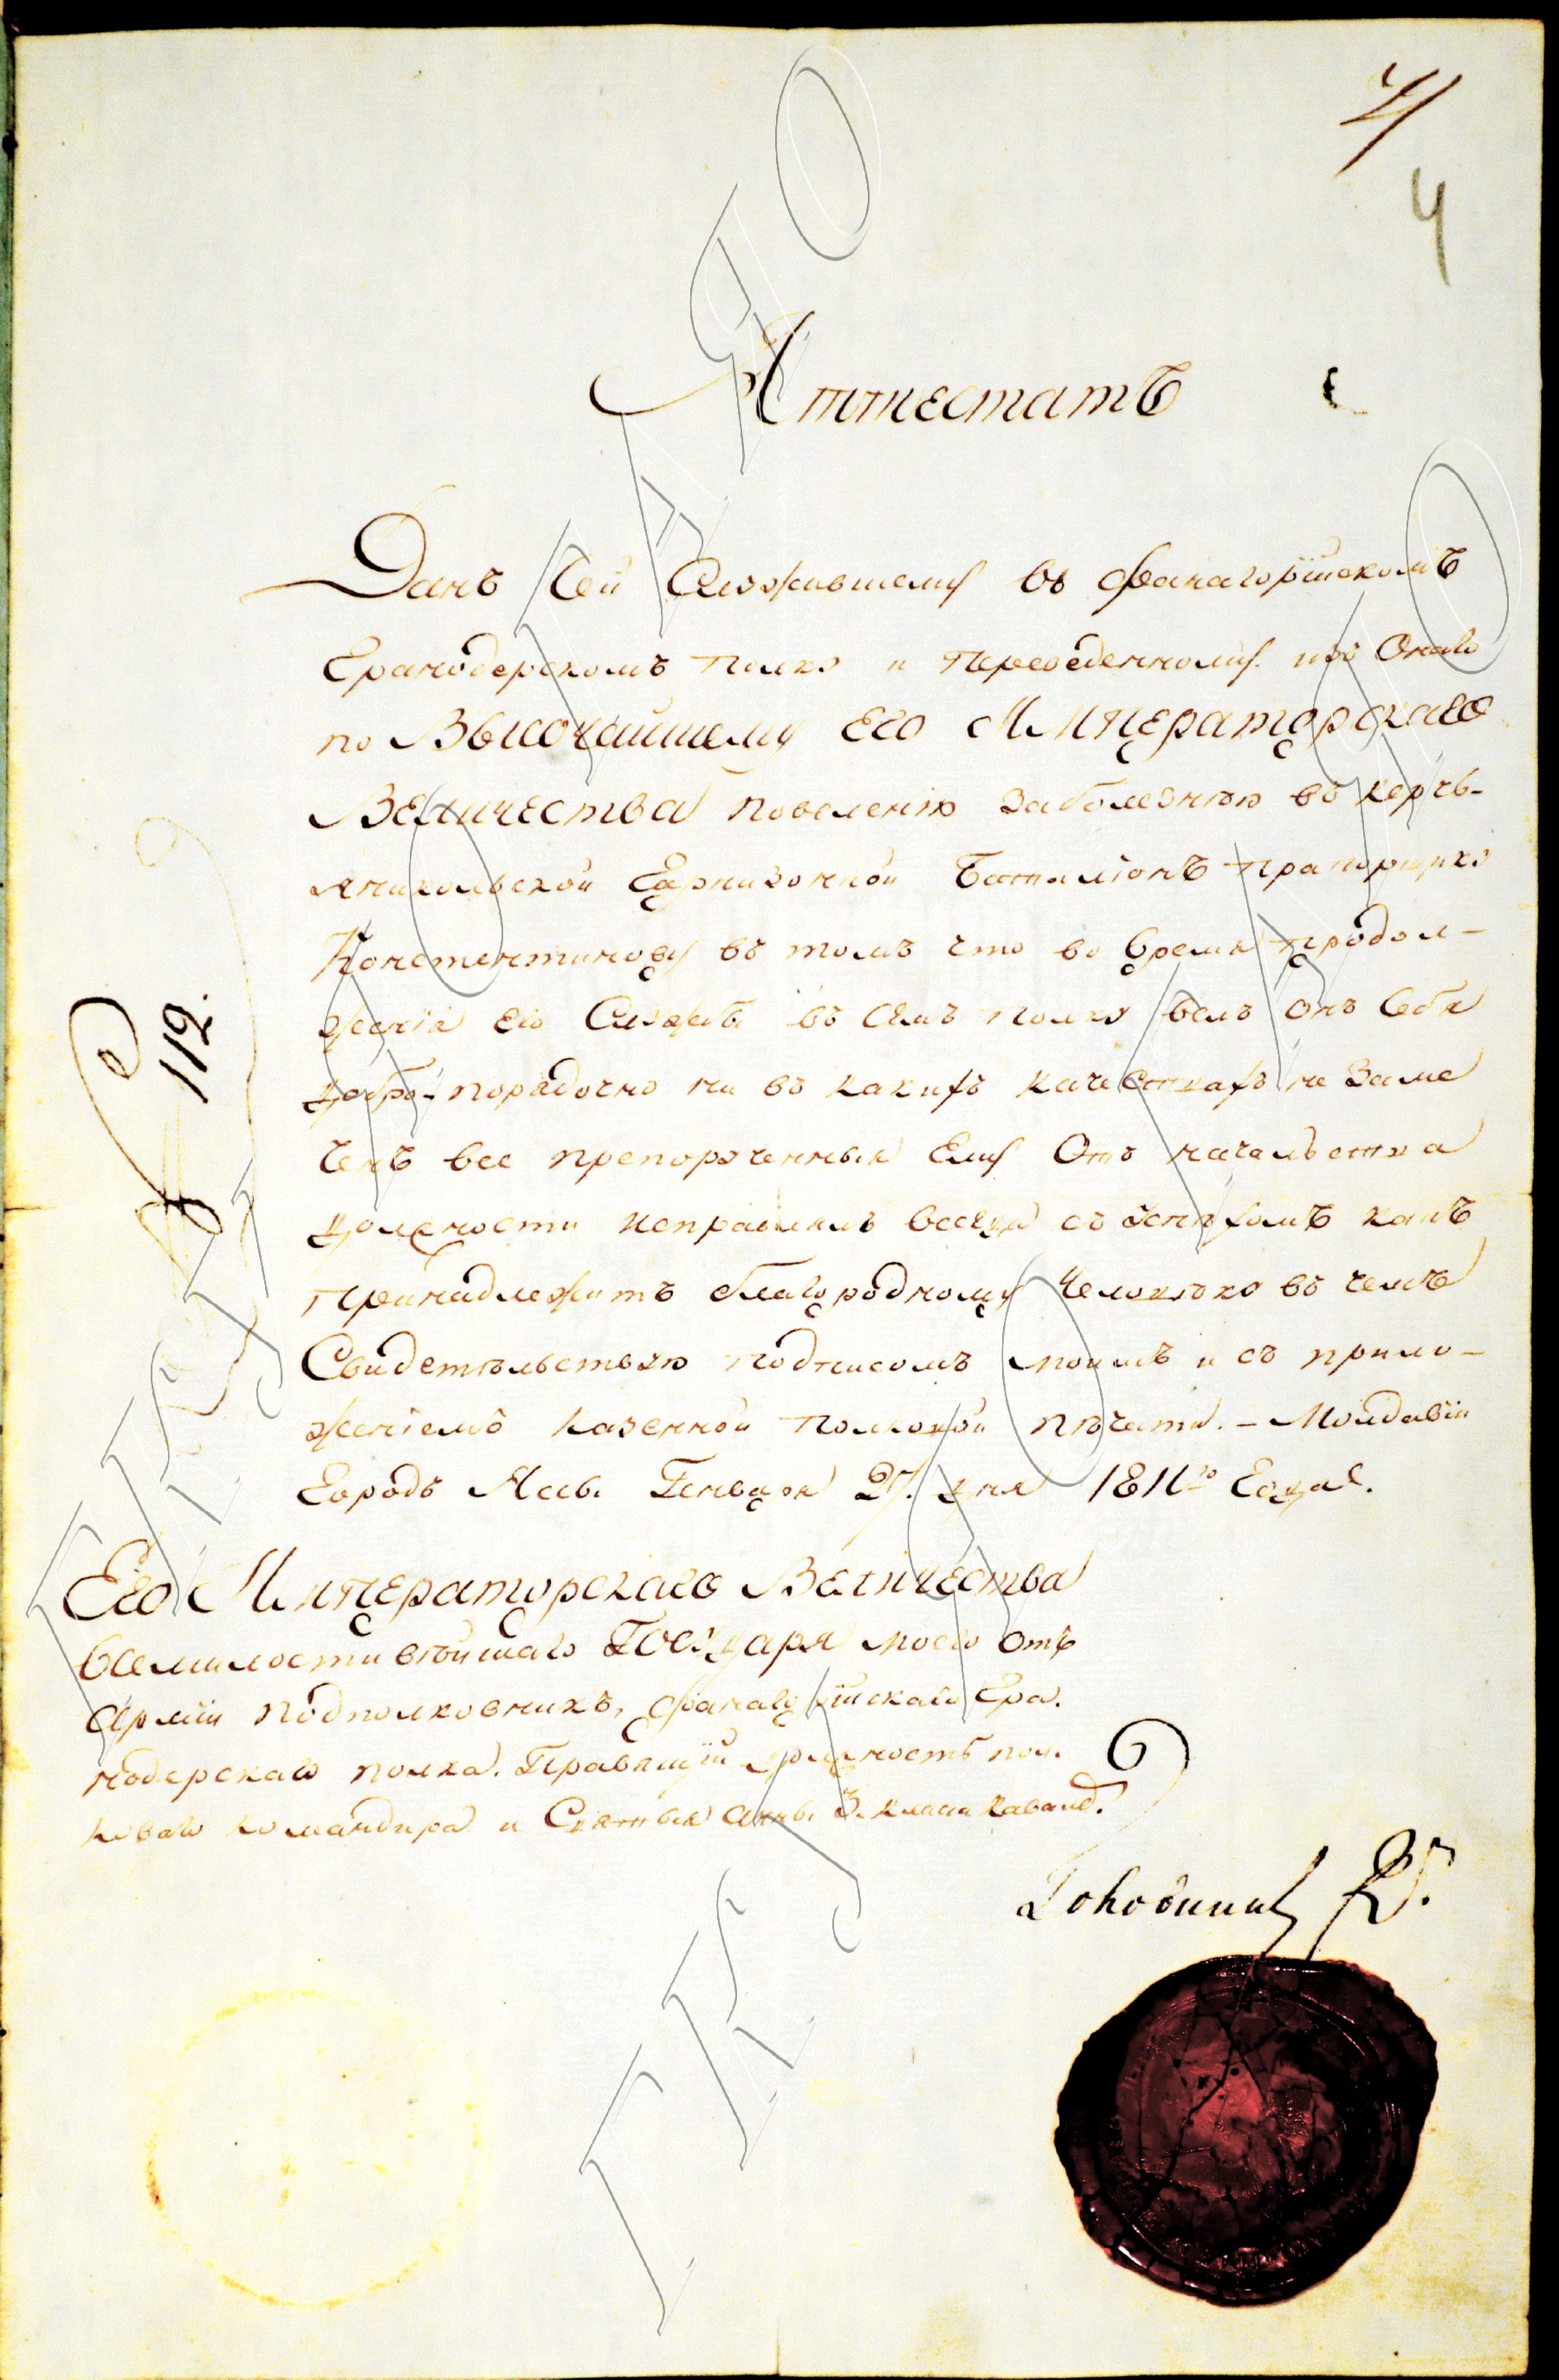 4
4
Аттестатъ
Данъ Сей Служившему въ Фанагорійскомъ
Гранодерскомъ полку и переведенному изъ Онаго
по Высочайшему Его Императорскаго
Величества повеленію Заболезнію въ керчь-
яникольской Гарнизонной Баталіонъ прапорщику
Константинову въ томъ что во время продол-
женія его Службы въ семъ полку велъ Онъ Себя
добро-порядочно ни въ какихъ качествахъ не Заме
ченъ все препорученныя Ему Отъ начальства
должности исправлялъ всегда съ успѣхомъ какъ
принадлежитъ благородному Человѣку въ чемъ
Свидетѣльствую подписомъ моимъ и съ прило-
женіемъ казенной полковой пѣчати. – Молдавіи
Городъ Яссы Генваря 27. дня 1811го Года.
Его Императорскаго Величества
Всемилостивѣйшаго Государя моего отъ
Арміи подполковникъ, Фанагорійскаго Гра.
нодерскаго полка. Правящій должность пол.
коваго командира и Святыя Анны 3. класса Кавалѣ.
№ 112.